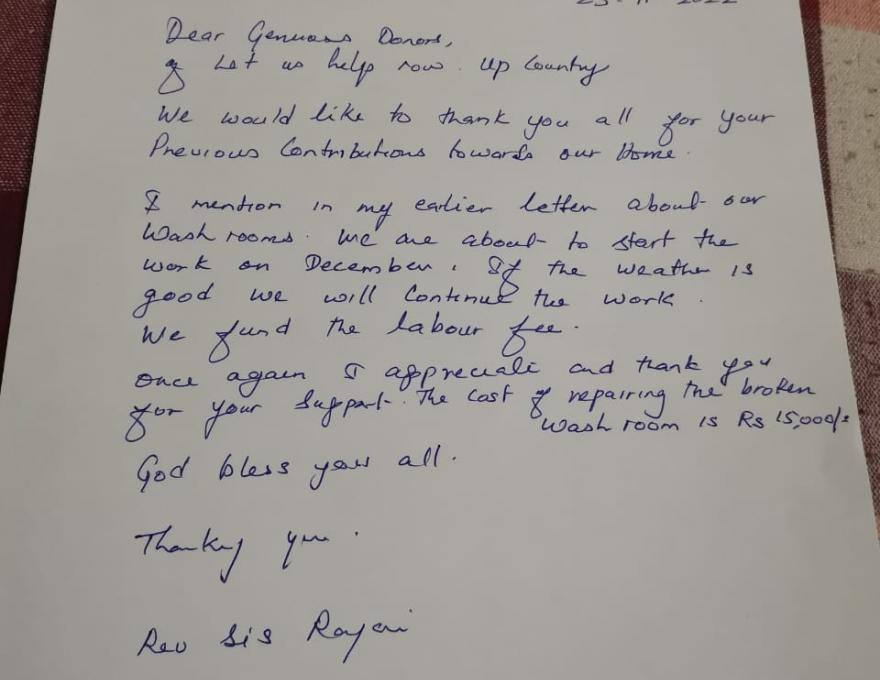 2022
Dear Generous Donors,
of Let us help now. Up Country
We would like to thank you all for your
Previous Contributions towards our Home.
I mention in my earlier letter about our
Wash rooms. We are about to start the
work on December. If the weather is
good we will Continue the work.
We fund the labour fee.
Once again I appreciate and thank you
for your Support. The Cost of repairing the broken
Wash room is Rs 15,000/=
God bless you all.
Thanking you.
Rev Sis